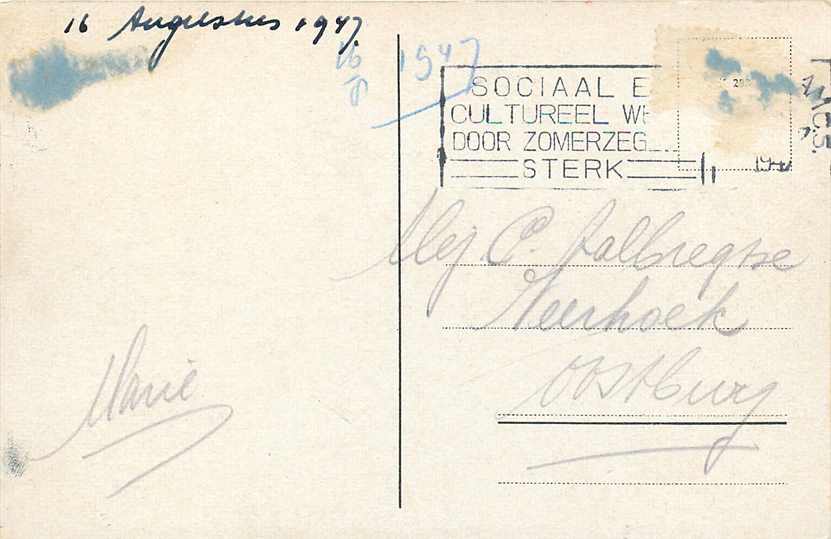 16 Augustus 1947
16 1947
8
SOCIAAL E
CULTUREEL WE
DOOR ZOMERZEG
STERK
Mej C. Aalbregtse
Neerhoek
Oostburg
Marie